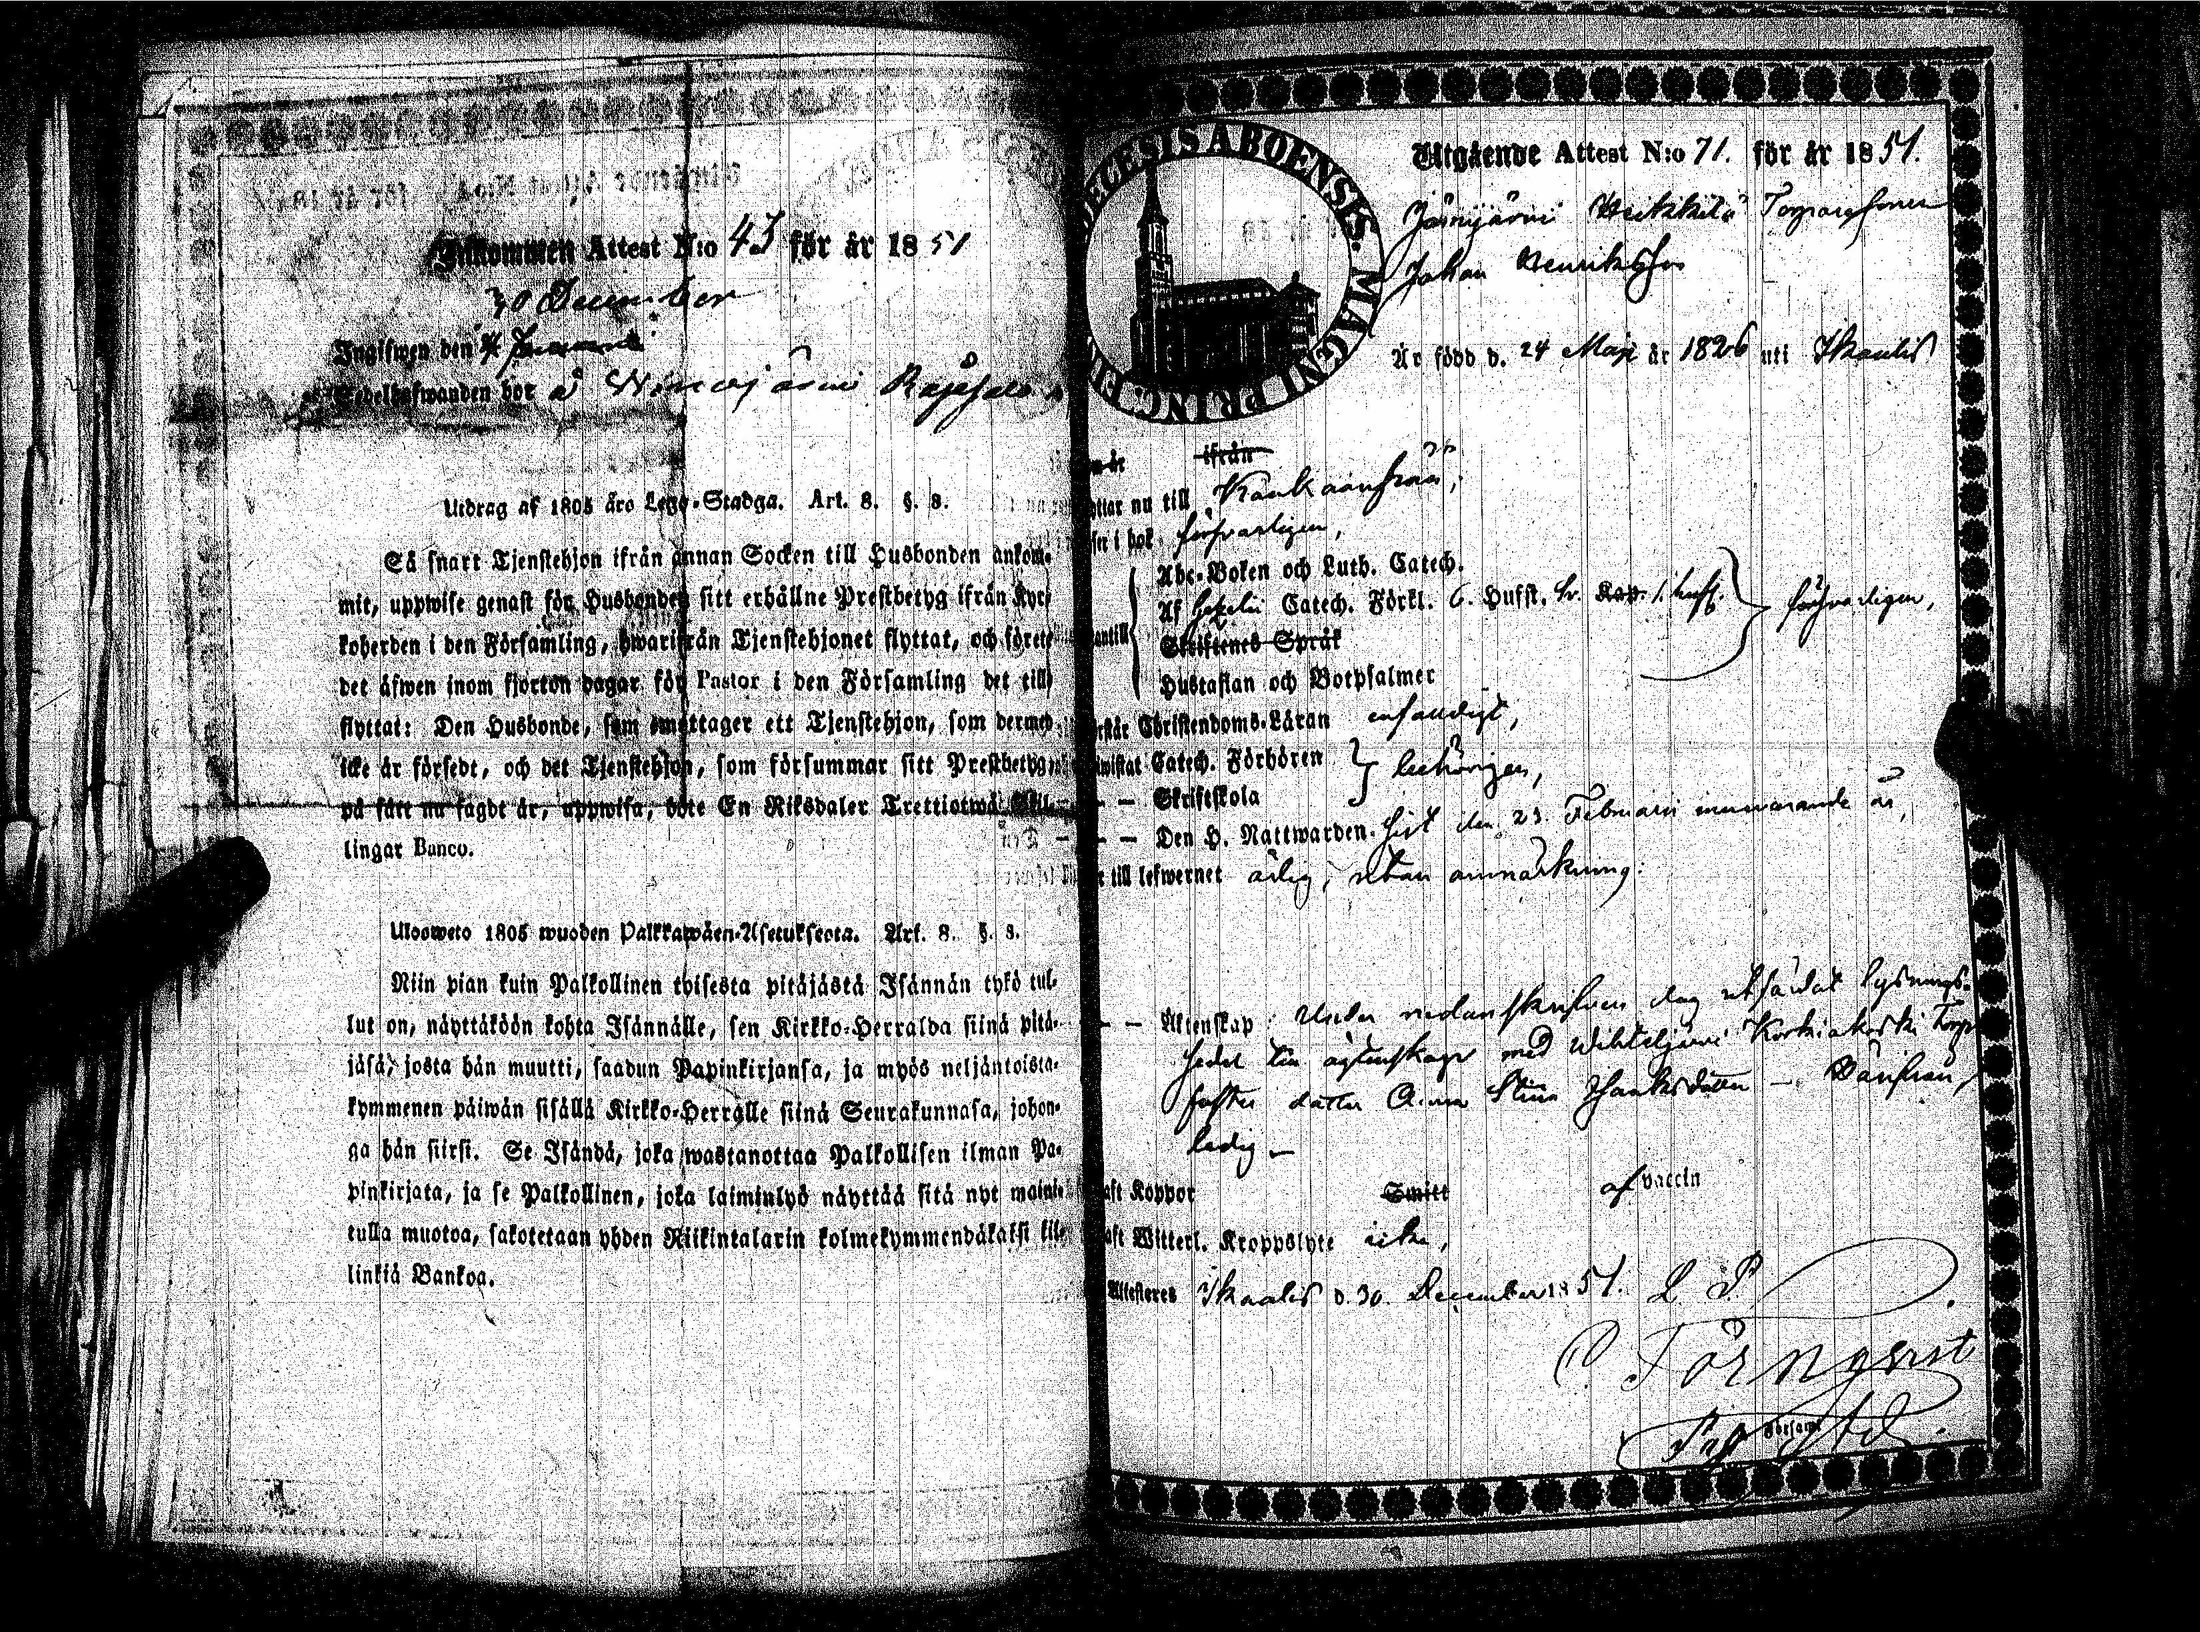 Inkommen Attest N:o 43 för år 1851
30 December
Ingifwen den
Sedelhafwanden bor å
Utdrag af 1805 åro Lego-Stadga. Art. 8. §. 8.
Så snart Tjenstehjon ifrån annan Socken till Husbonden ankom-
mit, uppwise genast för Husbonden sitt erhållne Prestbetyg ifrån Kyr-
koherden i den Församling, hwarifrån Tjenstehjonet flyttat, och förete
det äfwen inom fjorton dagar för Pastor i den Församling det till-
flyttat: Den Husbonde, som emottager ett Tjenstehjon, som dermed
icke är försedt, och det Tjenstehjon, som försummar sitt Prestbetyg
på sätt nu sagdt är, uppwisa, böte En Riksdaler Trettiotwå Skil-
lingar Banco.
Ulosweto 1805 wuoden Palkkawäen-Asetuksesta. Art. 8. §. 8.
Niin pian kuin Palkollinen toisesta pitäjästä Isännän tykö tul-
lut on, näyttäköön kohta Isännälle, sen Kirkko-Herralda siinä pitä-
jäsä, josta hän muutti, saadun Papinkirjansa, ja myös neljäntoista-
kymmenen päiwän sisällä Kirkko-Herralle siinä Seurakunnasa, johon-
ga hän siirsi. Se Isändä, joka wastanottaa Palkollisen ilman Pa-
pinkirjata, ja se Palkollinen, joka laiminlyö näyttää sitä nyt maini-
tulla muotoa, sakotetaan yhden Riikintalarin kolmekymmendäkaksi kil-
linkiä Bankoa.
DIECESIS ABOENSIS. MAGNI PRINC. FIN
Utgående Attest N:o 71. för år 1851.
Heikkilä Torparesonen
Johan Henriksson
Är född d. 24 Maji år 1826 uti Ikaalis
ifrån
nu till Kankaanpää,
i bok försvarligen,
Abc-Boken och Luth. Catech.
Af Gezelii Catech. Förkl. 6. Hufst. försvarligen,
Skriftenes Språk
Hustaflan och Botpsalmer
Christendoms-Läran enfaldigt,
Catech. Förhören behörigen,
— — Skriftskola
— — Den H. Nattwarden sist den 23. Februarii innevarande år,
till lefwernet ärlig, utan anmärkning.
— — Äktenskap: Under nedanskrifven dag utfärdat lysnings-
sedel till ägtenskap med Torp
dotter Anna Stina
ledig —
Koppor Smitt af vaccin
Witterl. Kroppslyte icke,
Attesteres Ikaalis d. 30 December 1851. L. S.
Törnqvist